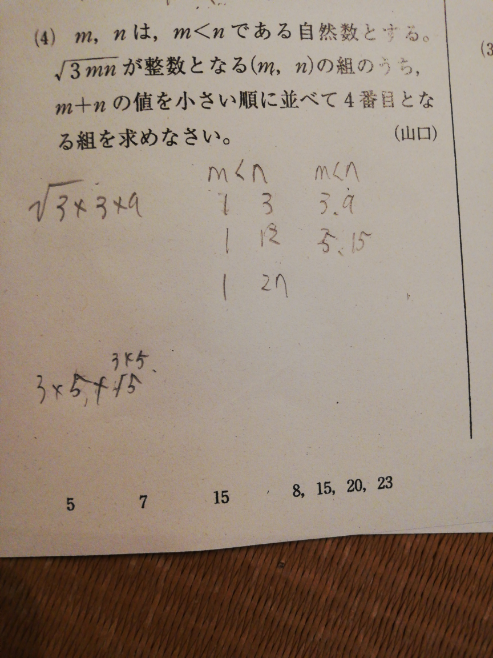 (4) m, nは, m<nである自然数とする。
√3mnが整数となる(m, n)の組のうち,
m+nの値を小さい順に並べて4番目とな
る組を求めなさい。 (山口)
(3
m<n m<n
√3×3×9 1 3 3.9
1 12 5.15
1 27
3×5
3×5,×15
5 7 15 8, 15, 20, 23